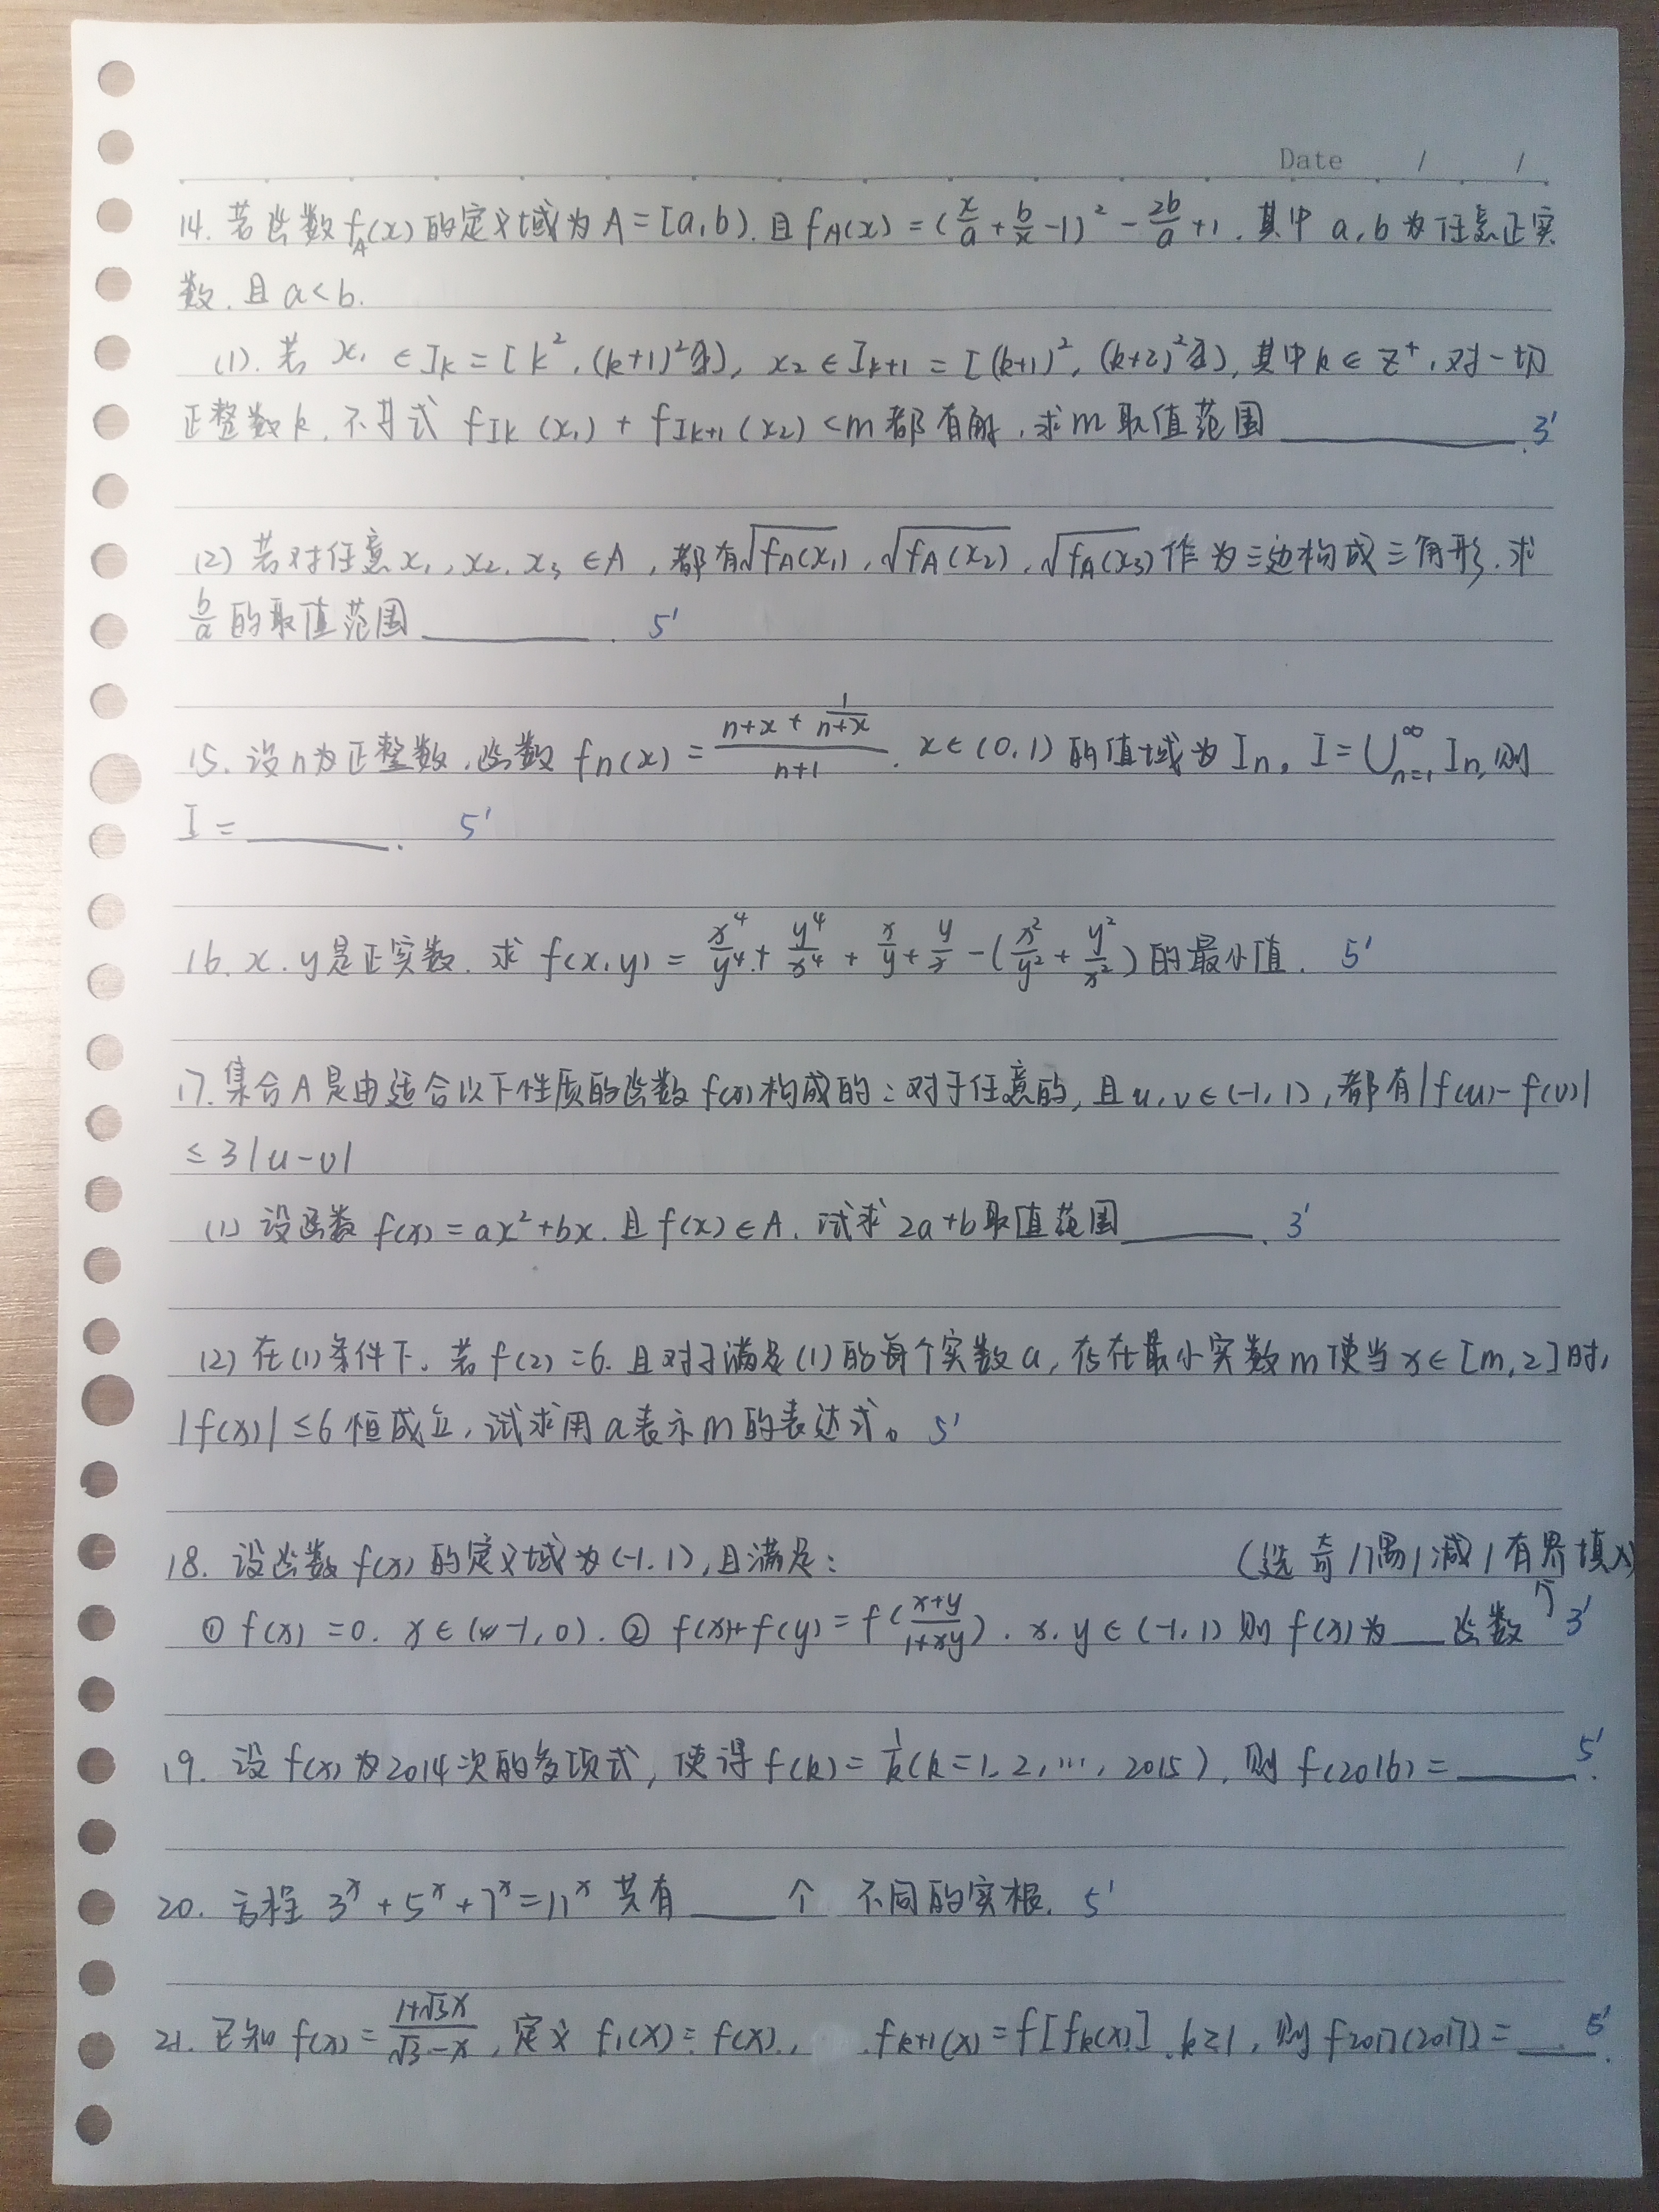 Date / /
14. 若函数 f_A(x) 的定义域为 A=[a,b). 且 f_A(x) = (x/a + b/x -1)² - 2b/a +1. 其中 a,b 为任意正实
数. 且 a<b.
(1). 若 x₁ ∈ I_k = [k², (k+1)²), x₂ ∈ I_{k+1} = [(k+1)², (k+2)²), 其中 k ∈ Z⁺, 对一切
正整数 k. 不等式 f_{I_k}(x₁) + f_{I_{k+1}}(x₂) < m 都有解, 求 m 取值范围 ______. 3'
(2) 若对任意 x₁, x₂, x₃ ∈ A, 都有 √f_A(x₁), √f_A(x₂), √f_A(x₃) 作为三边构成三角形. 求
b/a 的取值范围 ______. 5'
15. 设 n 为正整数, 函数 f_n(x) = (n+x+1/(n+x))/(n+1). x ∈ (0,1) 的值域为 I_n, I = ⋃_{n=1}^∞ I_n, 则
I = ______. 5'
16. x. y 是正实数. 求 f(x,y) = x⁴/y⁴ + y⁴/x⁴ + x/y + y/x - (x²/y² + y²/x²) 的最小值. 5'
17. 集合 A 是由适合以下性质的函数 f(x) 构成的: 对于任意的, 且 u, v ∈ (-1, 1), 都有 |f(u) - f(v)|
≤ 3|u-v|
(1) 设函数 f(x) = ax² + bx. 且 f(x) ∈ A. 试求 2a+b 取值范围 ______. 3'
(2) 在 (1) 条件下. 若 f(2) = 6. 且对于满足 (1) 的每个实数 a, 存在最小实数 m 使当 x ∈ [m, 2] 时,
|f(x)| ≤ 6 恒成立, 试求用 a 表示 m 的表达式。 5'
18. 设函数 f(x) 的定义域为 (-1, 1), 且满足: (选 奇/偶/减/有界 填入)
① f(x) = 0. x ∈ (-1, 0). ② f(x)+f(y) = f((x+y)/(1+xy)). x. y ∈ (-1, 1) 则 f(x) 为 ___ 函数 3'
19. 设 f(x) 为 2014 次的多项式, 使得 f(k) = 1/k (k=1, 2, ..., 2015), 则 f(2016) = ______. 5'
20. 方程 3^x + 5^x + 7^x = 11^x 共有 ____ 个 不同的实根. 5'
21. 已知 f(x) = (1+√3x)/(√3-x), 定义 f₁(x) = f(x), f_{k+1}(x) = f[f_k(x)], k≥1, 则 f₂₀₁₇(2017) = ____. 5'